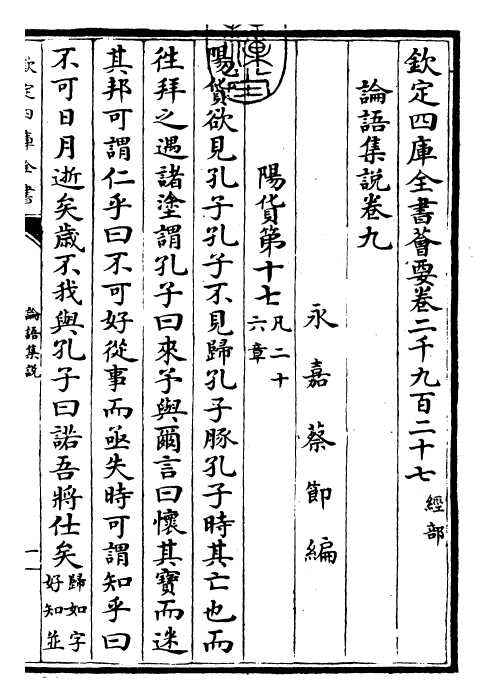 欽定四庫全書薈要卷二千九百二十七經部
論語集說卷九
永嘉蔡節編
陽貨第十七凡二十六章
陽貨欲見孔子孔子不見歸孔子豚孔子時其亡也而
徃拜之遇諸塗謂孔子曰來予與爾言曰懷其寶而迷
其邦可謂仁乎曰不可好從事而亟失時可謂知乎曰
不可日月逝矣歲不我與孔子曰諾吾將仕矣歸如字好知並
欽定四庫全書
論語集說
一